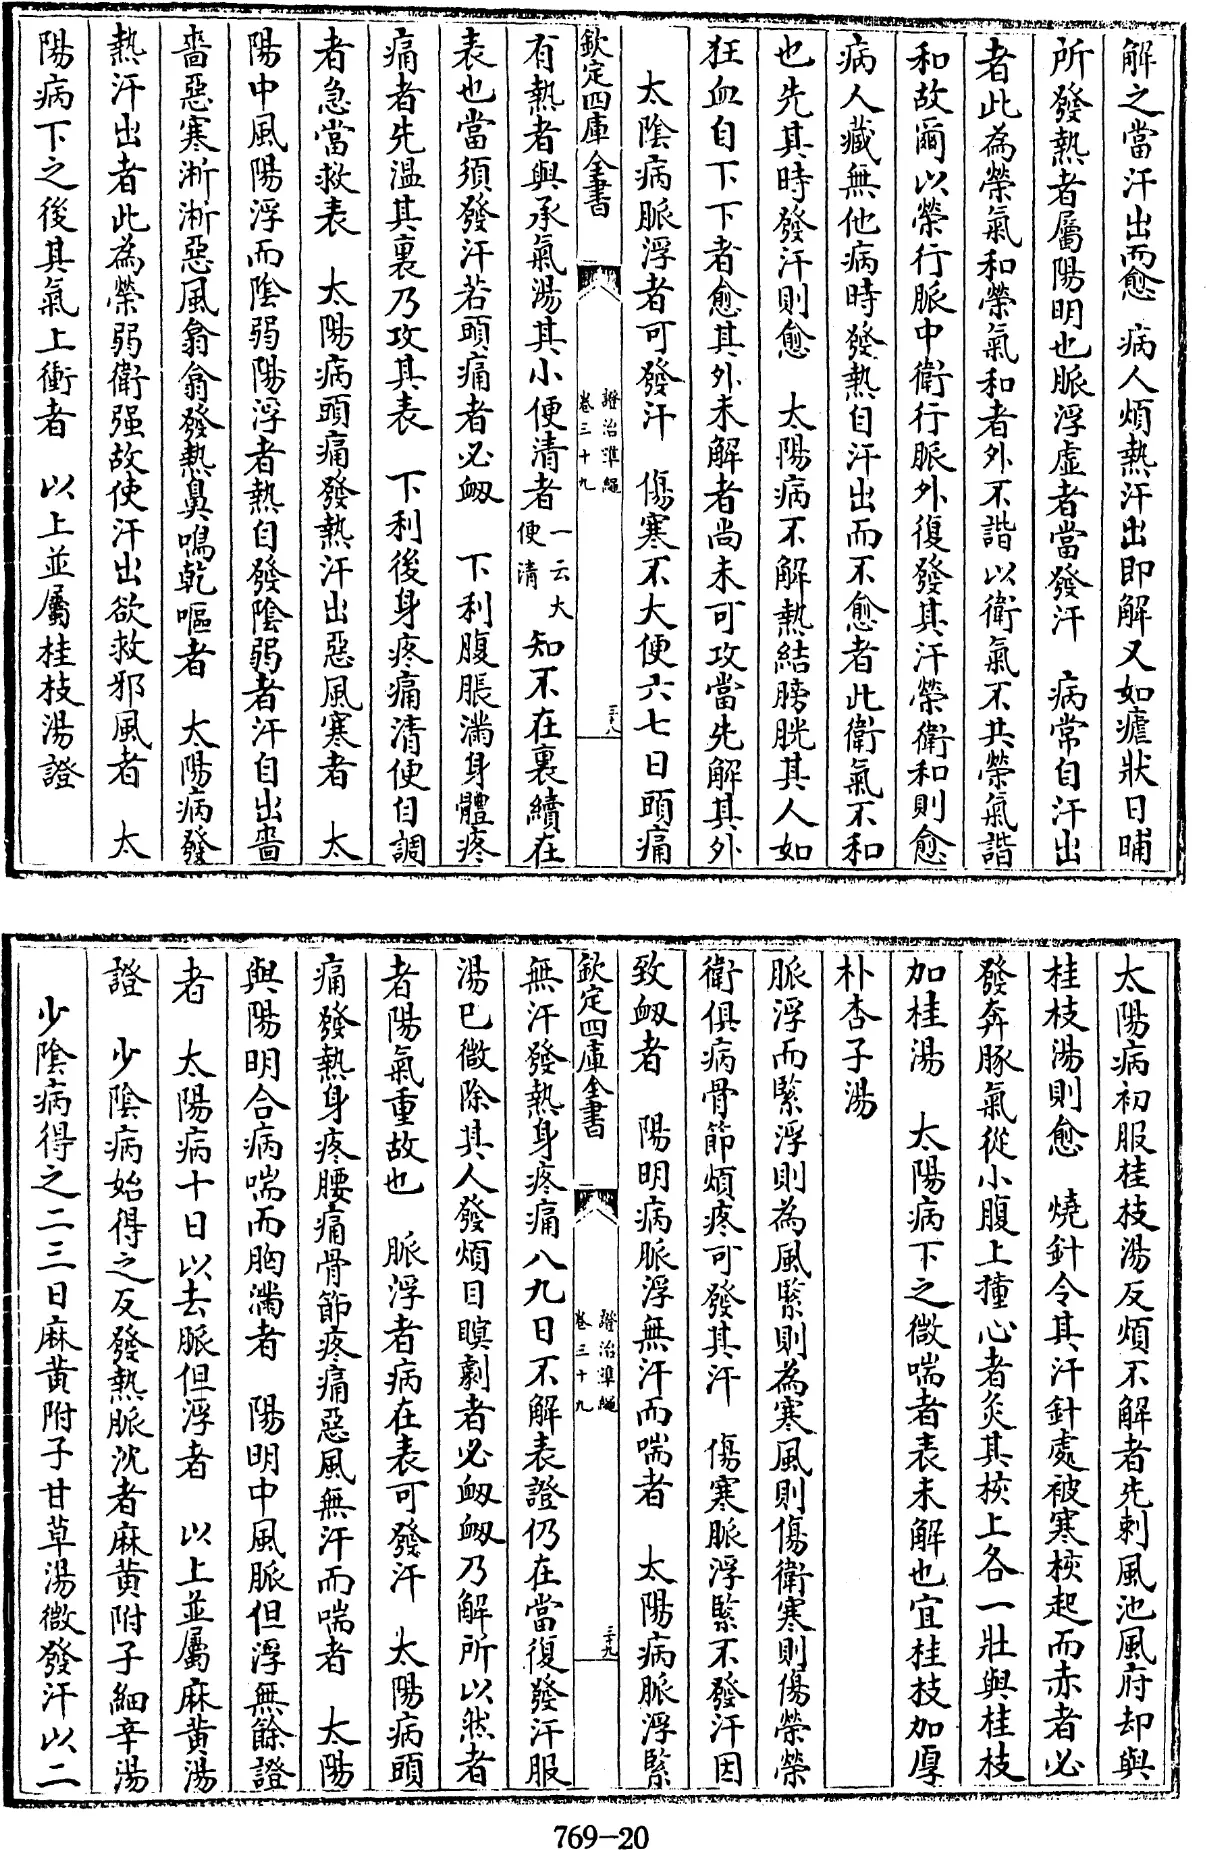 解之當汗出而愈　病人煩熱汗出即解又如瘧狀日晡
所發熱者屬陽明也脈浮虛者當發汗　病常自汗出
者此為榮氣和榮氣和者外不諧以衛氣不共榮氣諧
和故爾以榮行脈中衛行脈外復發其汗榮衛和則愈
病人藏無他病時發熱自汗出而不愈者此衛氣不和
也先其時發汗則愈　太陽病不解熱結膀胱其人如
狂血自下下者愈其外未解者尚未可攻當先解其外
太陰病脈浮者可發汗　傷寒不大便六七日頭痛
欽定四庫全書
證治準繩
卷三十九
三十八
有熱者與承氣湯其小便清者一云大便清知不在裏續在
表也當須發汗若頭痛者必衂　下利腹脹滿身體疼
痛者先溫其裏乃攻其表　下利後身疼痛清便自調
者急當救表　太陽病頭痛發熱汗出惡風寒者　太
陽中風陽浮而陰弱陽浮者熱自發陰弱者汗自出嗇
嗇惡寒淅淅惡風翕翕發熱鼻鳴乾嘔者　太陽病發
熱汗出者此為榮弱衛强故使汗出欲救邪風者　太
陽病下之後其氣上衝者　以上並屬桂枝湯證
太陽病初服桂枝湯反煩不解者先刺風池風府却與
桂枝湯則愈　燒針令其汗針處被寒核起而赤者必
發奔豚氣從小腹上撞心者灸其核上各一壯與桂枝
加桂湯　太陽病下之微喘者表未解也宜桂枝加厚
朴杏子湯
脈浮而緊浮則為風緊則為寒風則傷衛寒則傷榮榮
衛俱病骨節煩疼可發其汗　傷寒脈浮緊不發汗因
致衂者　陽明病脈浮無汗而喘者　太陽病脈浮緊
欽定四庫全書
證治準繩
卷三十九
三十九
無汗發熱身疼痛八九日不解表證仍在當復發汗服
湯已微除其人發煩目瞑劇者必衂衂乃解所以然者
者陽氣重故也　脈浮者病在表可發汗　太陽病頭
痛發熱身疼腰痛骨節疼痛惡風無汗而喘者　太陽
與陽明合病喘而胸滿者　陽明中風脈但浮無餘證
者　太陽病十日以去脈但浮者　以上並屬麻黃湯
證　少陰病始得之反發熱脈沈者麻黃附子細辛湯
少陰病得之二三日麻黃附子甘草湯微發汗以二
769-20